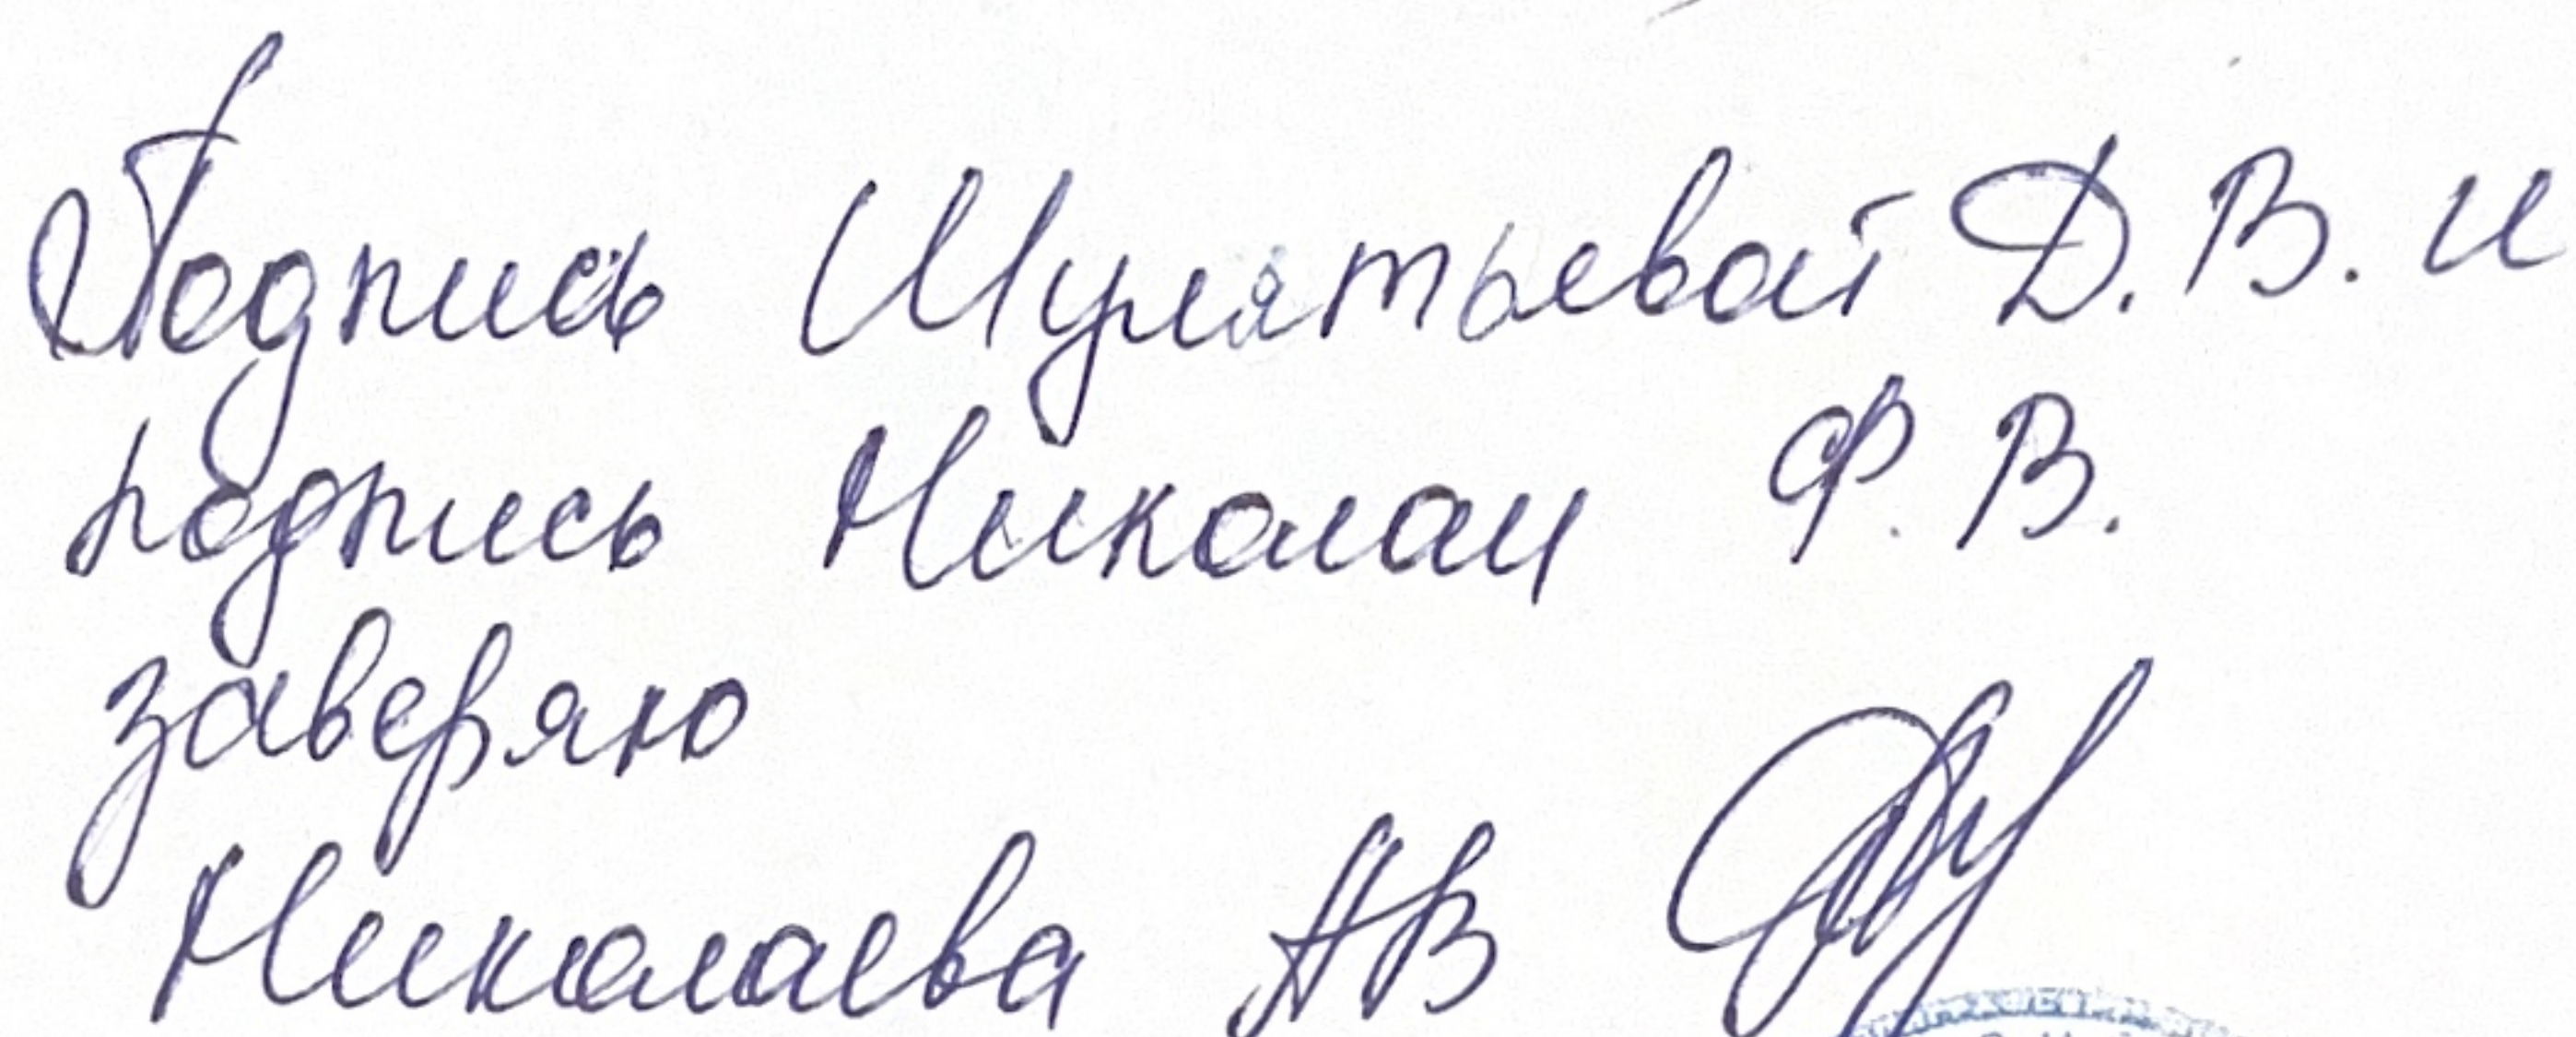 Подпись Шулятьевой Д. В. и
подпись Николаи Ф. В.
заверяю
Николаева АВ